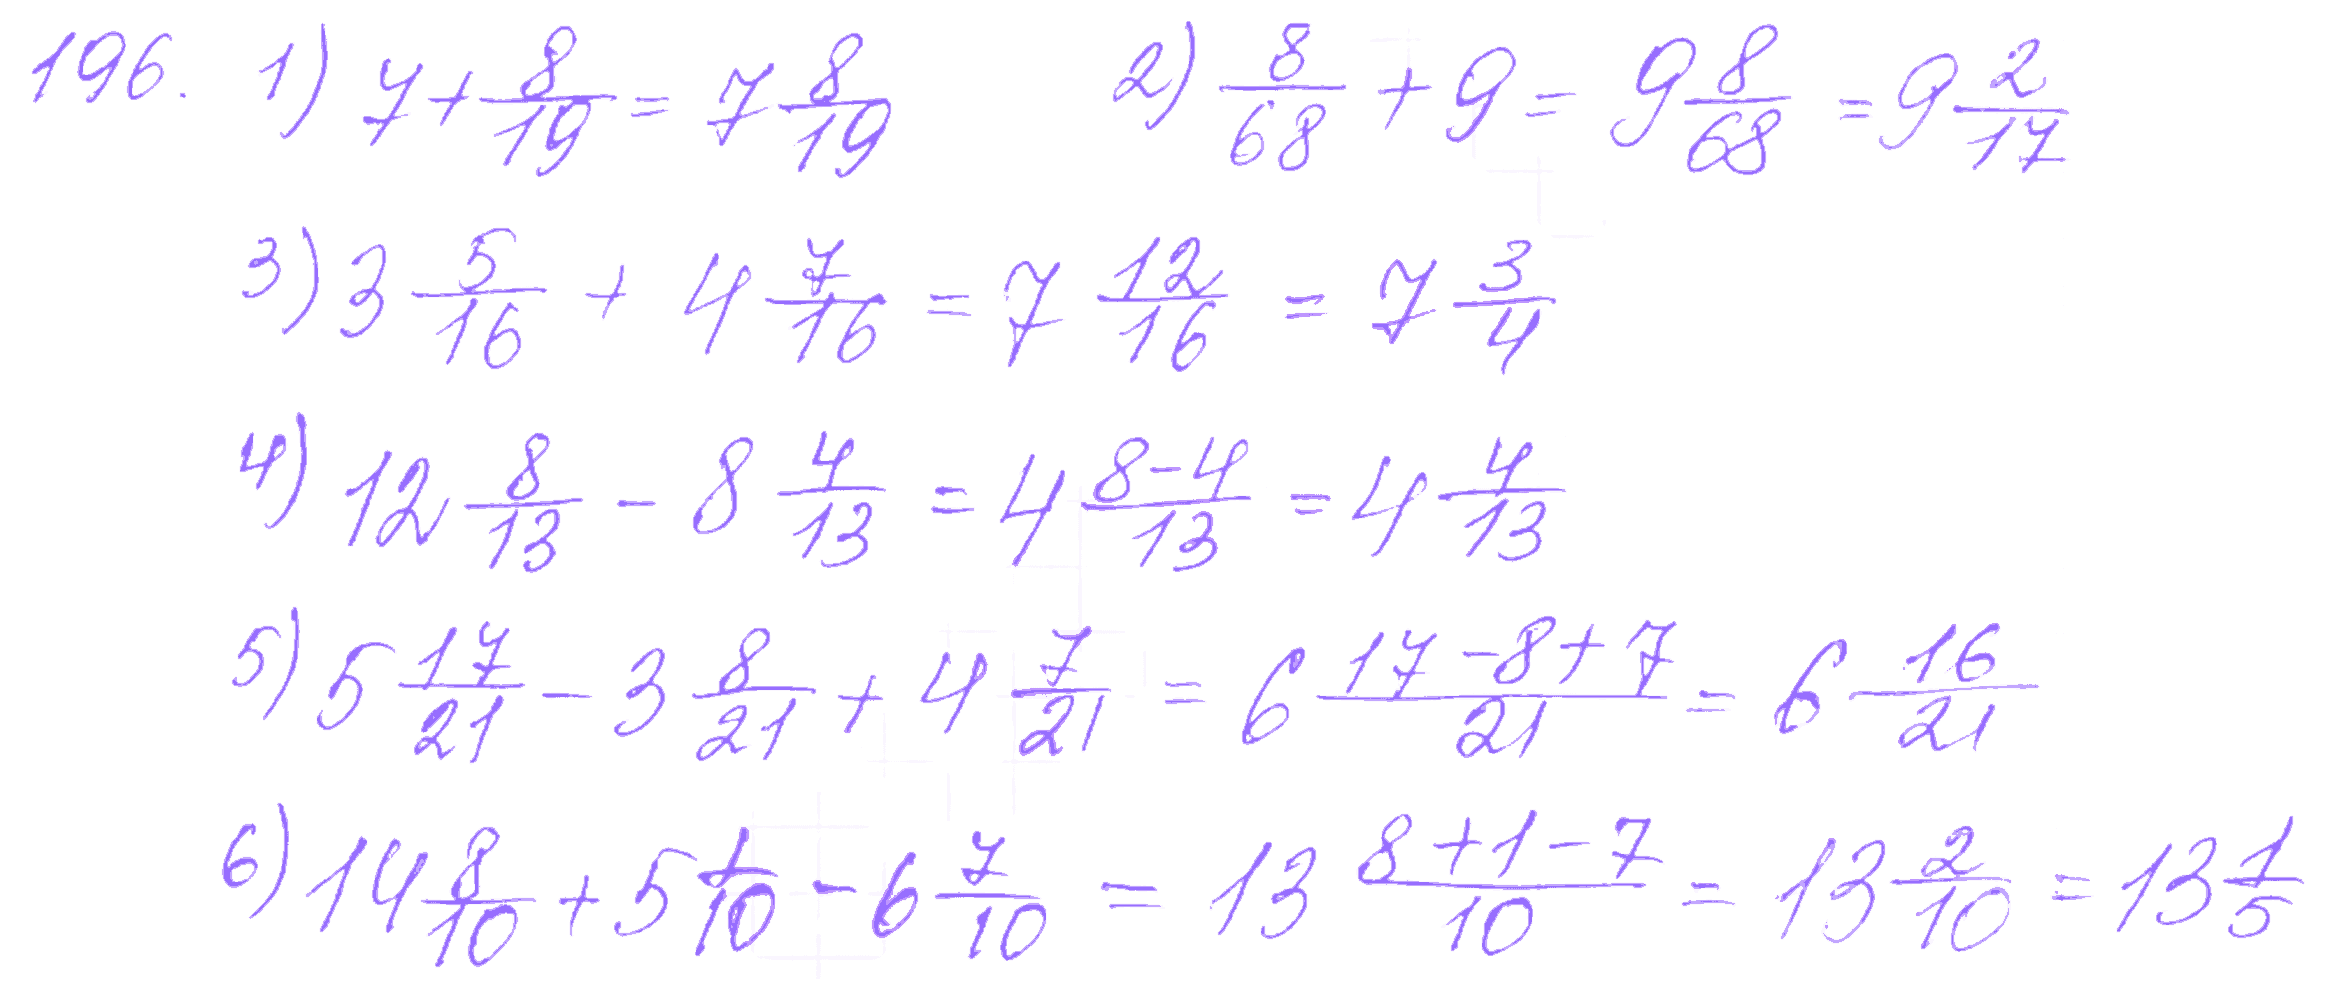 196. 1) 7 + 8/19 = 7 8/19 2) 8/68 + 9 = 9 8/68 = 9 2/17
3) 3 5/16 + 4 7/16 = 7 12/16 = 7 3/4
4) 12 8/13 - 8 4/13 = 4 (8-4)/13 = 4 4/13
5) 5 17/21 - 3 8/21 + 4 7/21 = 6 (17-8+7)/21 = 6 16/21
6) 14 8/10 + 5 1/10 - 6 7/10 = 13 (8+1-7)/10 = 13 2/10 = 13 1/5